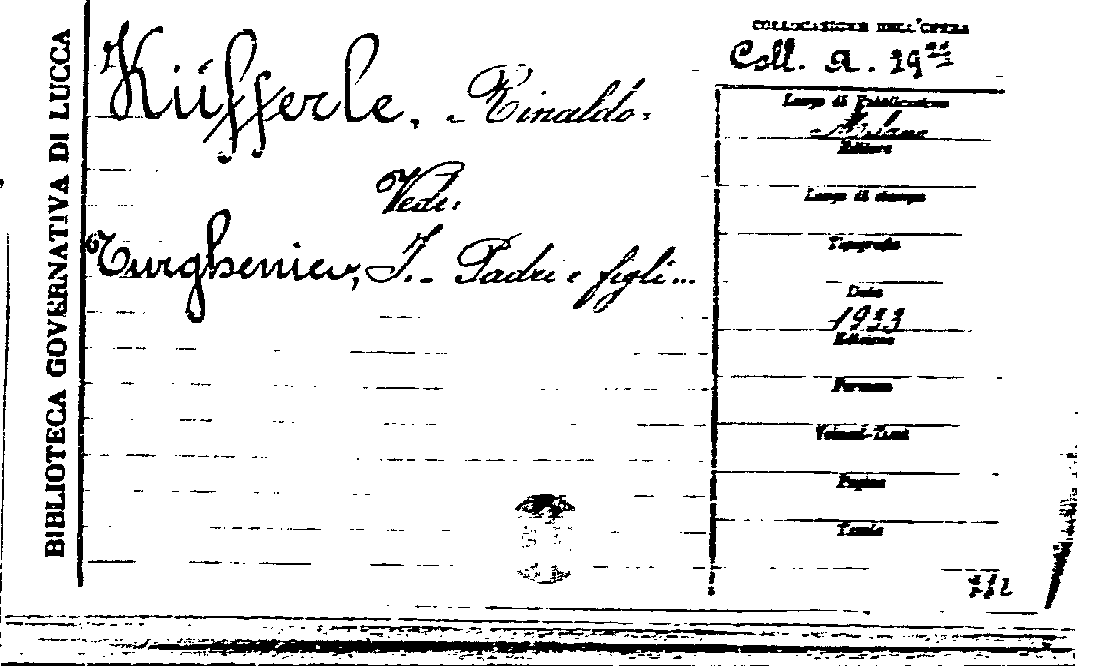 BIBLIOTECA GOVERNATIVA DI LUCCA
Küfferle, Rinaldo.
Vedi:
Turgheniev, I. - Padri e figli...
COLLOCAZIONE DELL'OPERA
Coll. A. 29
Luogo di Pubblicazione
Milano
Editore
Luogo di stampa
Tipografia
Data
1933
Edizione
Formato
Volumi-Tomi
Pagine
Tavole